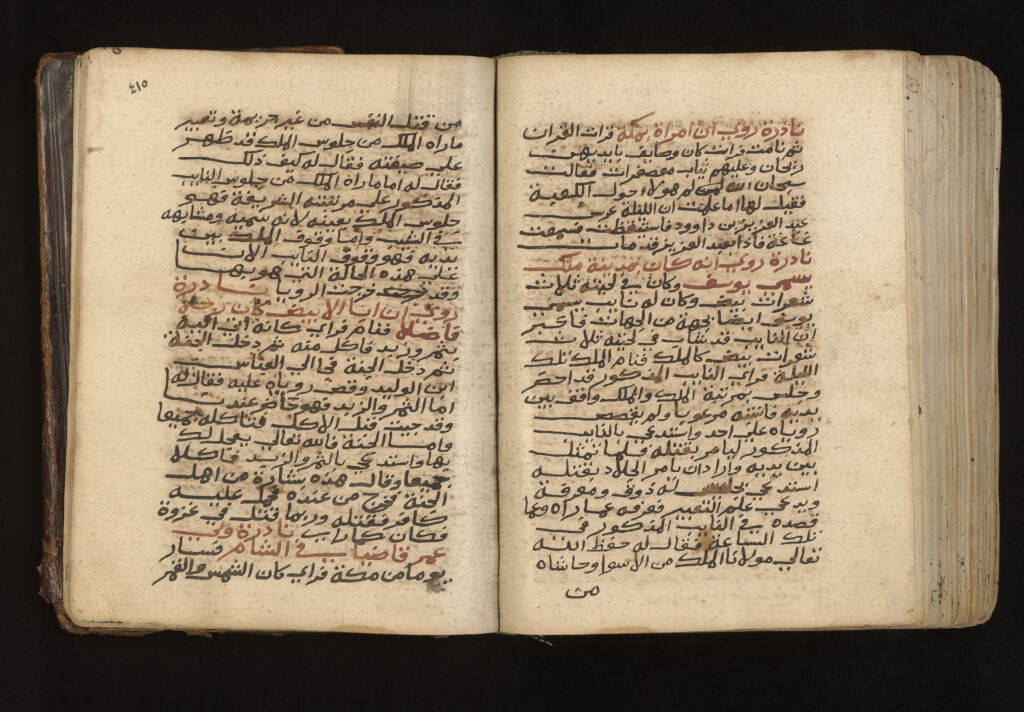 نادرة روي ان امراة بمكة قرات القران
ثم نامت فرات كان وصايف بايديهن
ريحان وعليهم ثياب معصفرات فقالت
سبحان الله هولاء حول الكعبة
فقيل لها اما علمت ان الليلة عرس
عبد العزيز بن داوود فاستيقظت فسمعت
غاغة فاذا بعبد العزيز قد مات
نادرة روي انه كان بمدينة ملك
يسمى يوسف وكان في لحيته ثلاث
شعرات بيض وكان له نايب يسمى
يوسف ايضا بجهة من الجهات فاخبر
ان النايب قد شاب في لحيته ثلاث
شعرات بيض كالملك فنام الملك تلك
الليلة فراي النايب المذكور قد احضر
وجلس بمرتبة الملك والملك واقف بين
يديه فانتبه مرعوبا ولم يقصص
روياه على احد واستدعي بالنايب
المذكور ليامر بقتله فلما تمثل
بين يديه واراد ان يامر الجلاد بقتله
استدعي بجليس له ذوق ومعرفة
ويدعي علم التعبير فعرفه عما راه وعما
قصده في النايب المذكور في
تلك الساعة فقال له حفظ الله
تعالي مولانا الملك من الاسوا وحاشاه
من
٤١٥
من قتل النفس من غير جريمة وتعبير
ماراه الملك من جلوس الملك قد ظهر
علي صيغته فقال له كيف ذلك
فقال له اما ماراة الملك من جلوس النايب
المذكور علي مرتبته الشريفة فهو
جلوس الملك بعينه لانه سميه ومشابهه
في الشيب واما وقوف الملك بين
يديه فهو وقوف النايب الان
علي هذه الحالة التي هو بها
وقد خرجت الرويا نادرة
روي ان ابا الابيض كان رجلا
فاضلا فنام فراي كانه اتي اليه
بتمر وزبد فاكل منه ثم دخل الجنة
ثم دخل الجنة فجا الي العباس
ابن الوليد وقص روياه عليه فقال له
اما التمر والزبد فهو حاضر عندنا
وقد جيت قبل الاكل فتاكله جميعا
واما الجنة فالله تعالي يعجل لك
بها واستدعي بالتمر والزبد فاكلا
جميعا وقال هذه بشارة من اهل
الجنة فخرج من عنده فحمل عليه
كافر فقتله وربما قتل في غزوة
فكان كما راي نادرة ولي
عمر قاضيا في الشام فسار
يوما من مكة فراي كان الشمس والقمر